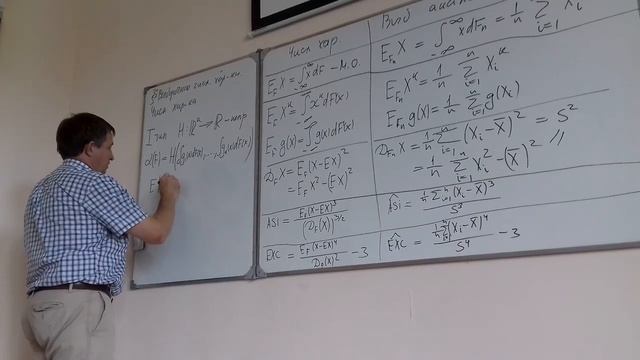 Числ. хар-ка
I тип H: ℝ^k → ℝ - непр.
E
Числ. хар.
E_F X = ∫_{-∞}^{∞} x dF - М.О.
E_F X^k = ∫_{-∞}^{∞} x^k dF(x)
E_F g(x) = ∫_{-∞}^{∞} g(x) dF(x)
D_F X = E_F (X-EX)^2
= E_F X^2 - (EX)^2
ASi = E_F (X-EX)^3 / (D_F(X))^{3/2}
EXC = E_F (X-EX)^4 / D_F(X)^2 - 3
E_{F_n} X = ∫_{-∞}^{∞} x dF_n = 1/n ∑_{i=1}^{n} X_i
E_{F_n} X^k = 1/n ∑_{i=1}^{n} X_i^k
E_{F_n} g(x) = 1/n ∑_{i=1}^{n} g(X_i)
D_{F_n} X = 1/n ∑_{i=1}^{n} (X_i - X̅)^2 = S^2
= 1/n ∑_{i=1}^{n} X_i^2 - (X̅)^2 //
ASi^ = 1/n ∑_{i=1}^{n} (X_i - X̅)^3 / S^3
EXC^ = 1/n ∑_{i=1}^{n} (X_i - X̅)^4 / S^4 - 3